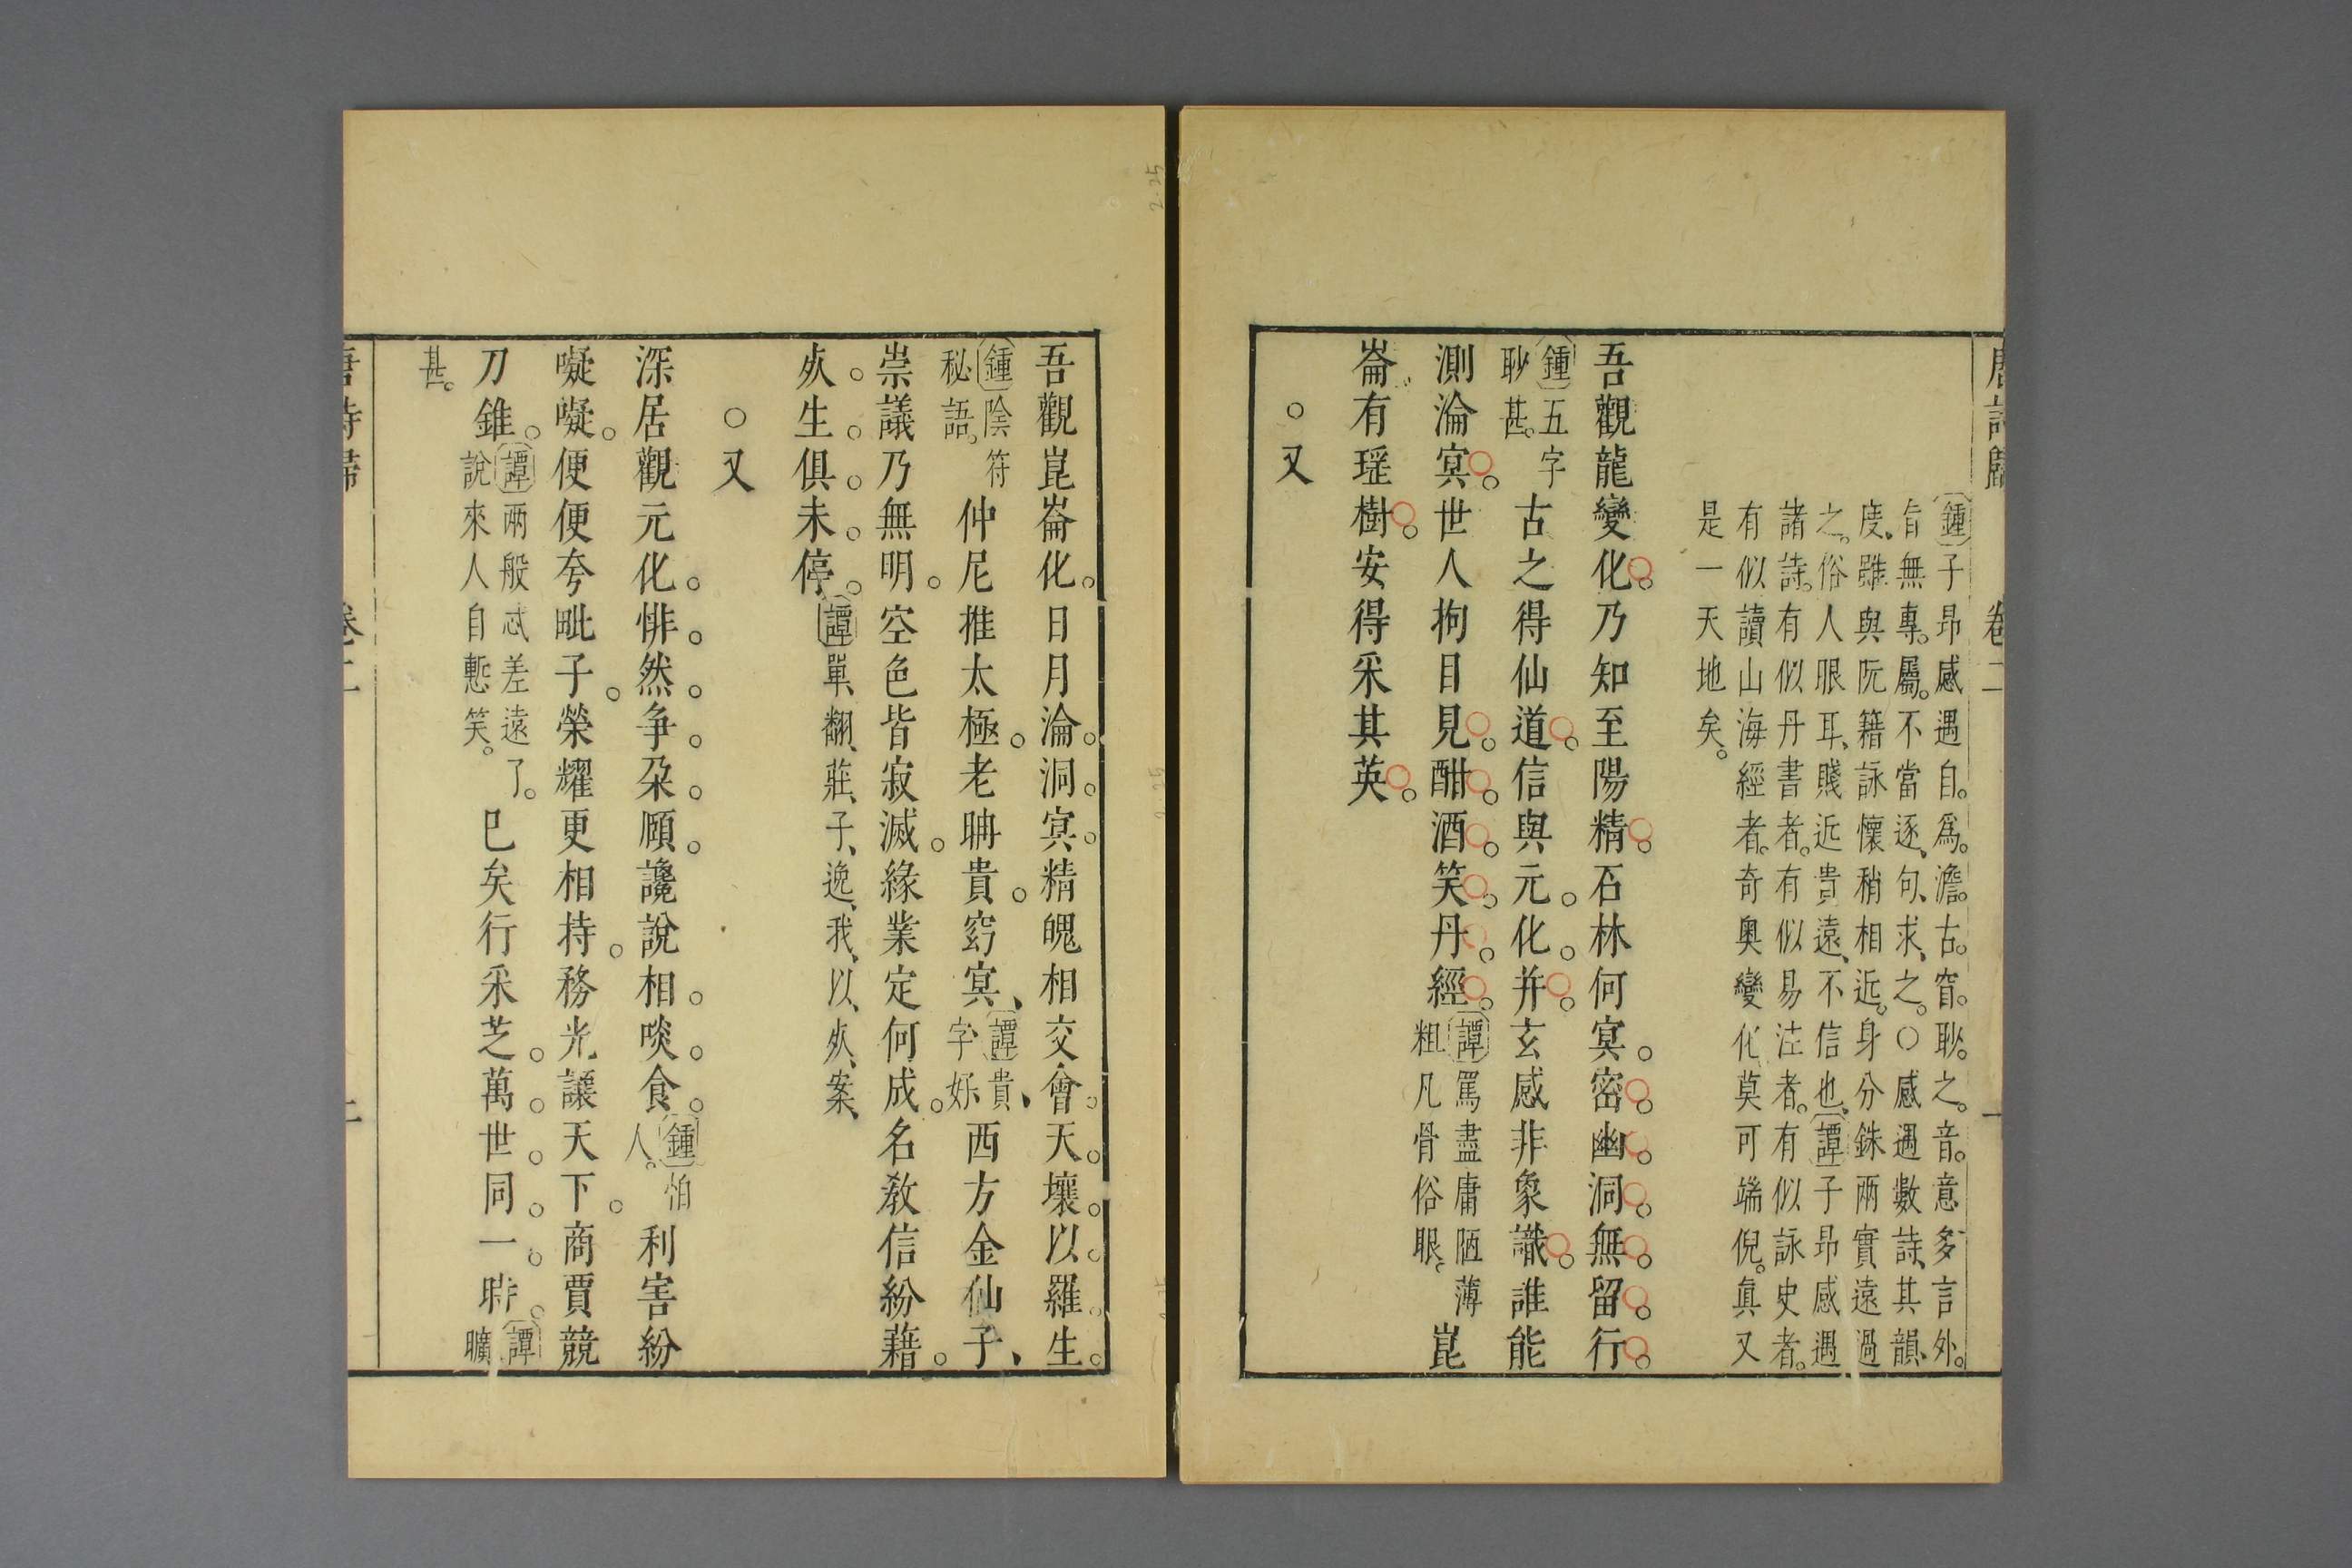 唐詩歸 卷二 一
鍾子昂感遇自爲澹古窅眇之音意多言外
旨無專屬不當逐句求之○感遇數詩其韻
度雖與阮籍詠懷稍相近身分銖兩實遠過
之俗人眼耳賤近貴遠不信也譚子昂感遇
諸詩有似丹書者有似易注者有似詠史者
有似讀山海經者奇奧變化莫可端倪真又
是一天地矣
吾觀龍變化乃知至陽精石林何冥密幽洞無留行
鍾五字
眇甚
古之得仙道信與元化并玄感非象識誰能
測淪冥世人拘目見酣酒笑丹經
譚罵盡庸陋薄
粗凡骨俗眼
崑
崙有瑶樹安得采其英
○又
吾觀崑崙化日月淪洞冥精魄相交會天壤以羅生
鍾陰符
秘語
仲尼推太極老聃貴窈冥
譚貴
字好
西方金仙子
崇議乃無明空色皆寂滅緣業定何成名教信紛藉
死生俱未停
譚單翻莊子逸我以死案
○又
深居觀元化悱然争朶頤讒說相啖食
鍾怕
人
利害紛
㘈㘈便便夸毗子榮耀更相持務光讓天下商賈競
刀錐
譚兩般忒差遠了
說來人自慙笑
巳矣行采芝萬世同一時
譚
曠
甚
唐詩歸 卷二 二
2.25